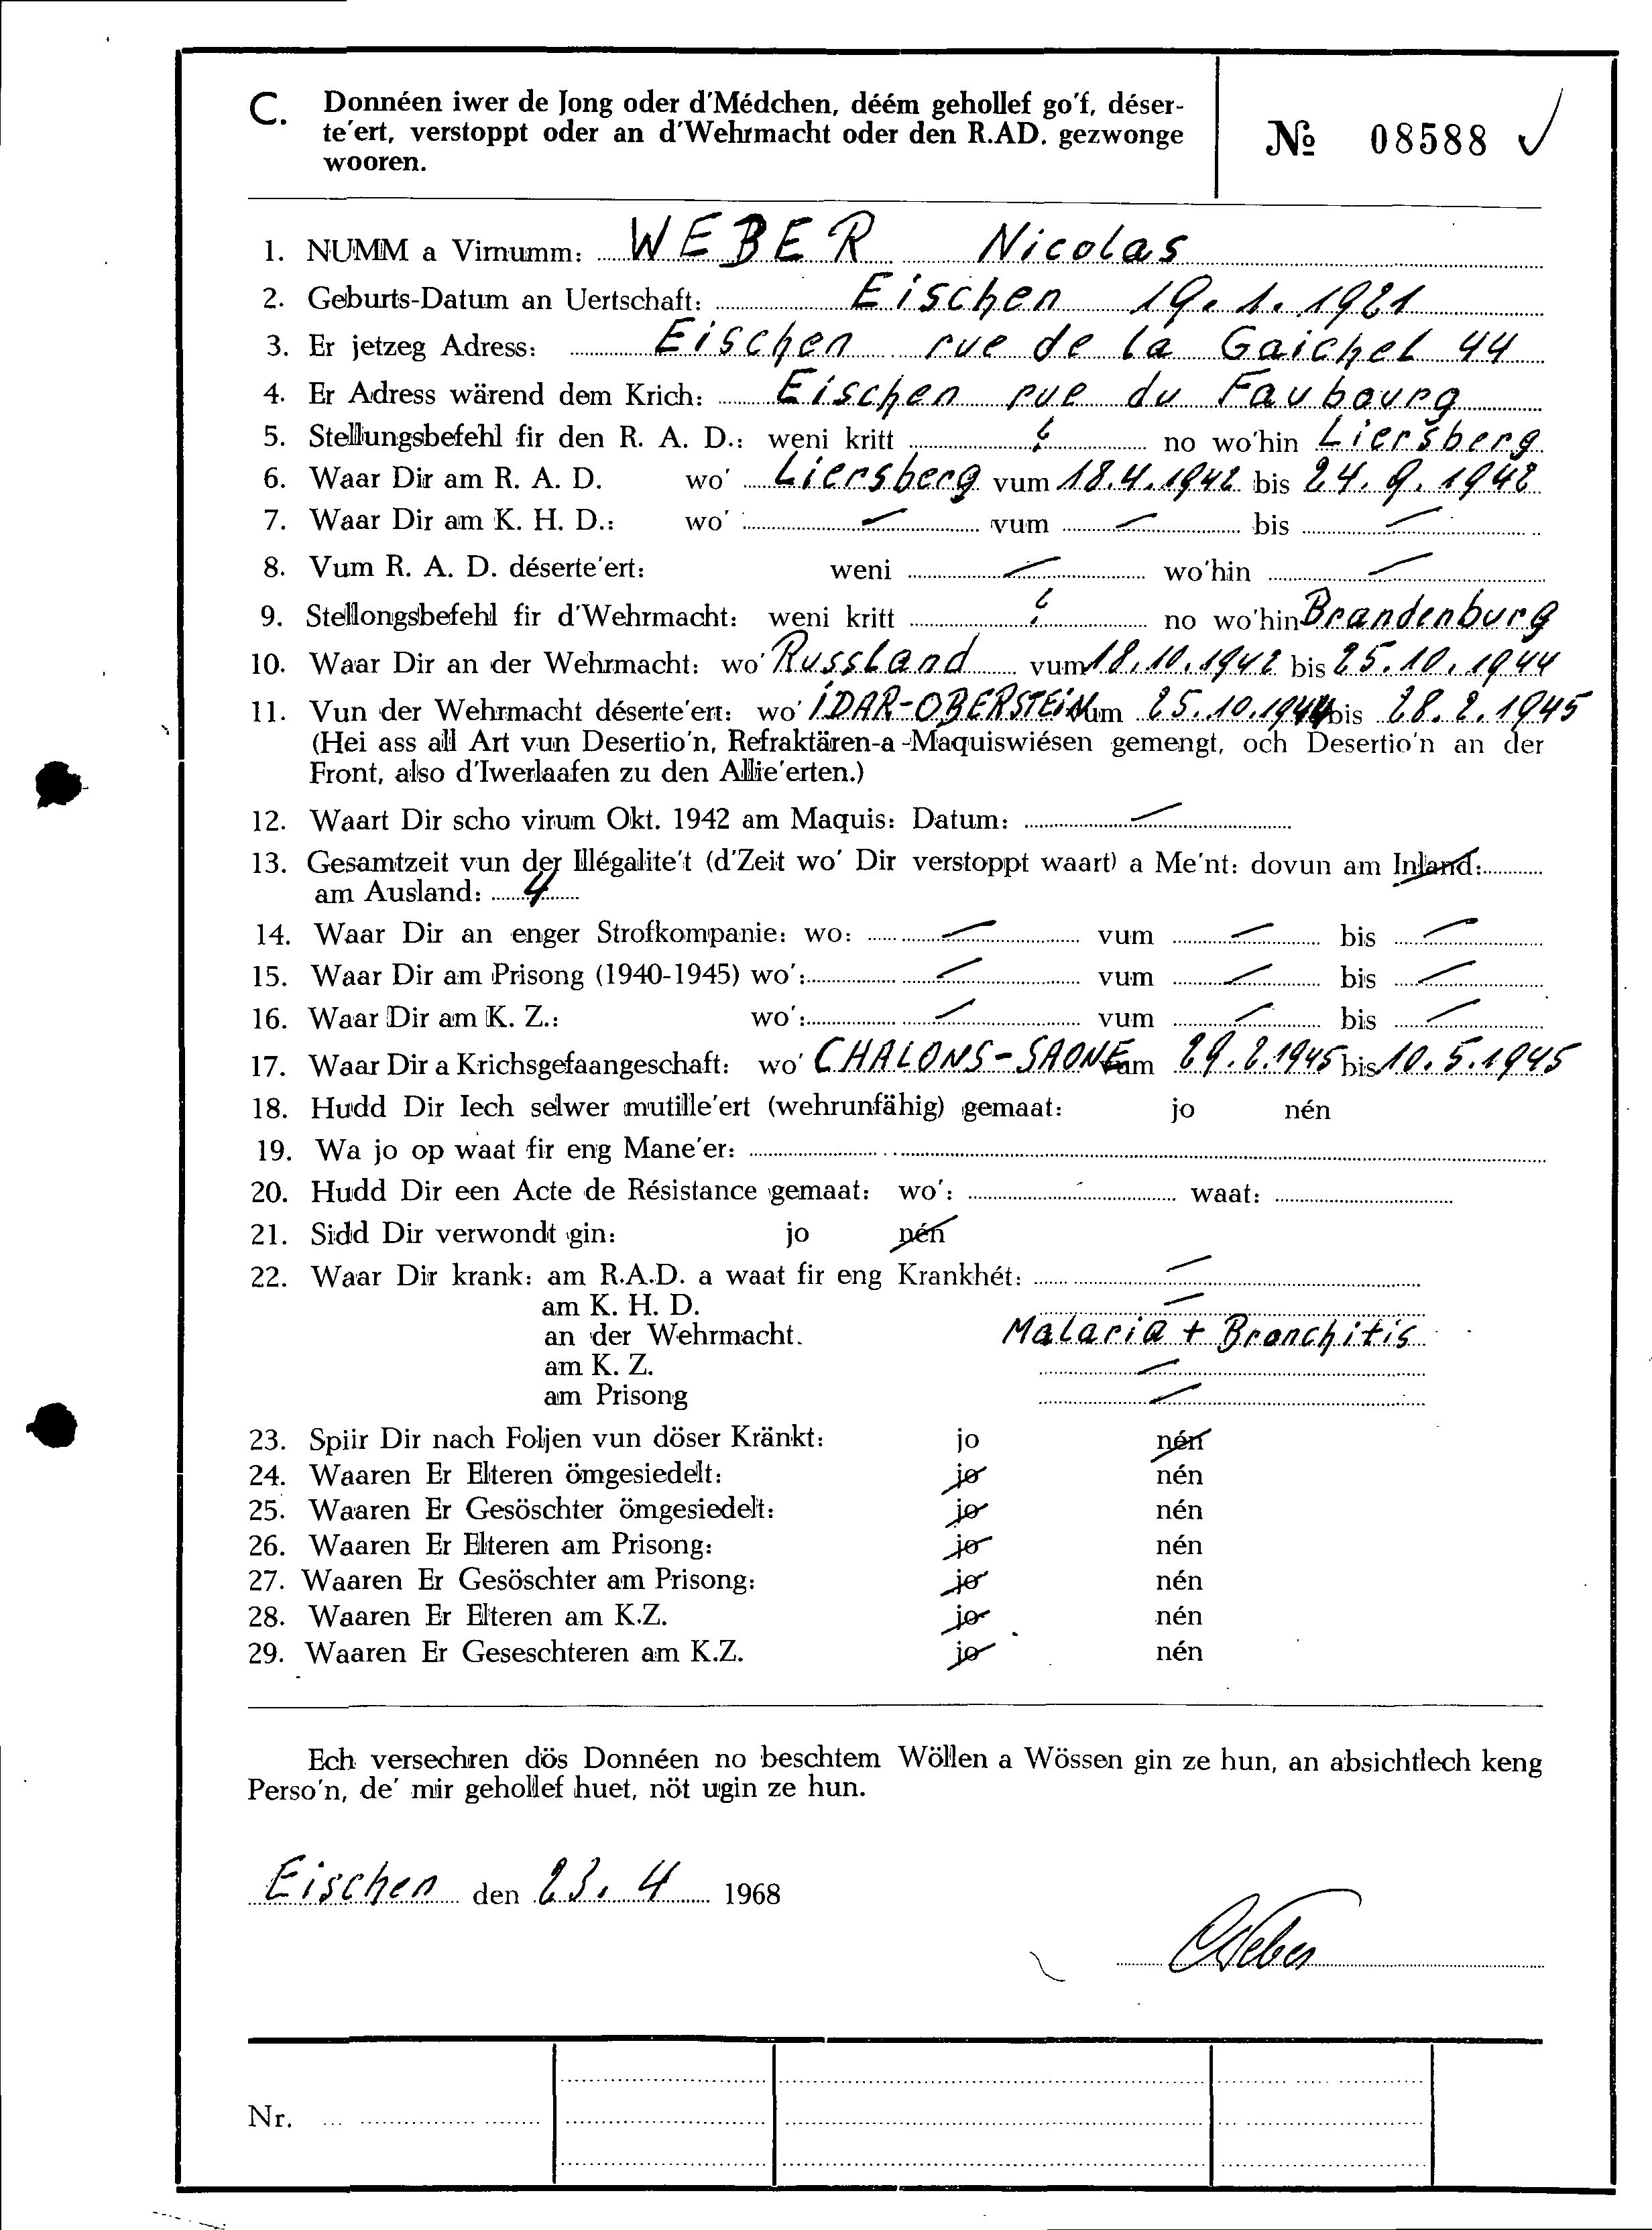 C. Donnéen iwer de Jong oder d'Médchen, déém gehollef go'f, déser-
te'ert, verstoppt oder an d'Wehrmacht oder den R.AD. gezwonge
wooren.
№ 08588 ✓
1. NUMM a Virnumm: WEBER Nicolas
2. Geburts-Datum an Uertschaft: Eischen 19.1.1921
3. Er jetzeg Adress: Eischen rue de la Gaichel 44
4. Er Adress wärend dem Krich: Eischen rue du Faubourg
5. Stellungsbefehl fir den R. A. D.: weni kritt ? no wo'hin Liersberg
6. Waar Dir am R. A. D. wo' Liersberg vum 18.4.1942 bis 24.9.1942
7. Waar Dir am K. H. D.: wo' — vum — bis —
8. Vum R. A. D. déserte'ert: weni — wo'hin —
9. Stellongsbefehl fir d'Wehrmacht: weni kritt ? no wo'hin Brandenburg
10. Waar Dir an der Wehrmacht: wo' Russland vum 18.10.1942 bis 25.10.1944
11. Vun der Wehrmacht déserte'ert: wo' IDAR-OBERSTEIN vum 25.10.1944 bis 28.2.1945
(Hei ass all Art vun Desertio'n, Refraktären-a-Maquiswiésen gemengt, och Desertio'n an der
Front, also d'Iwerlaafen zu den Allie'erten.)
12. Waart Dir scho virum Okt. 1942 am Maquis: Datum: —
13. Gesamtzeit vun der Illégalite't (d'Zeit wo' Dir verstoppt waart) a Me'nt: dovun am Inland:
am Ausland: 4
14. Waar Dir an enger Strofkompanie: wo: — vum — bis —
15. Waar Dir am Prisong (1940-1945) wo': — vum — bis —
16. Waar Dir am K. Z.: wo': — vum — bis —
17. Waar Dir a Krichsgefaangeschaft: wo' CHALONS-SAONE vum 29.2.1945 bis 10.5.1945
18. Hudd Dir Iech selwer mutille'ert (wehrunfähig) gemaat: jo nén
19. Wa jo op waat fir eng Mane'er:
20. Hudd Dir een Acte de Résistance gemaat: wo': waat:
21. Sidd Dir verwondt gin: jo nén
22. Waar Dir krank: am R.A.D. a waat fir eng Krankhét: —
am K. H. D. —
an der Wehrmacht. Malaria + Bronchitis
am K. Z. —
am Prisong —
23. Spiir Dir nach Foljen vun döser Kränkt: jo nén
24. Waaren Er Elteren ömgesiedelt: jo nén
25. Waaren Er Gesöschter ömgesiedelt: jo nén
26. Waaren Er Elteren am Prisong: jo nén
27. Waaren Er Gesöschter am Prisong: jo nén
28. Waaren Er Elteren am K.Z. jo nén
29. Waaren Er Geseschteren am K.Z. jo nén
Ech versechren dös Donnéen no beschtem Wöllen a Wössen gin ze hun, an absichtlech keng
Perso'n, de' mir gehollef huet, nöt ugin ze hun.
Eischen den 23. 4 1968
Weber
Nr.